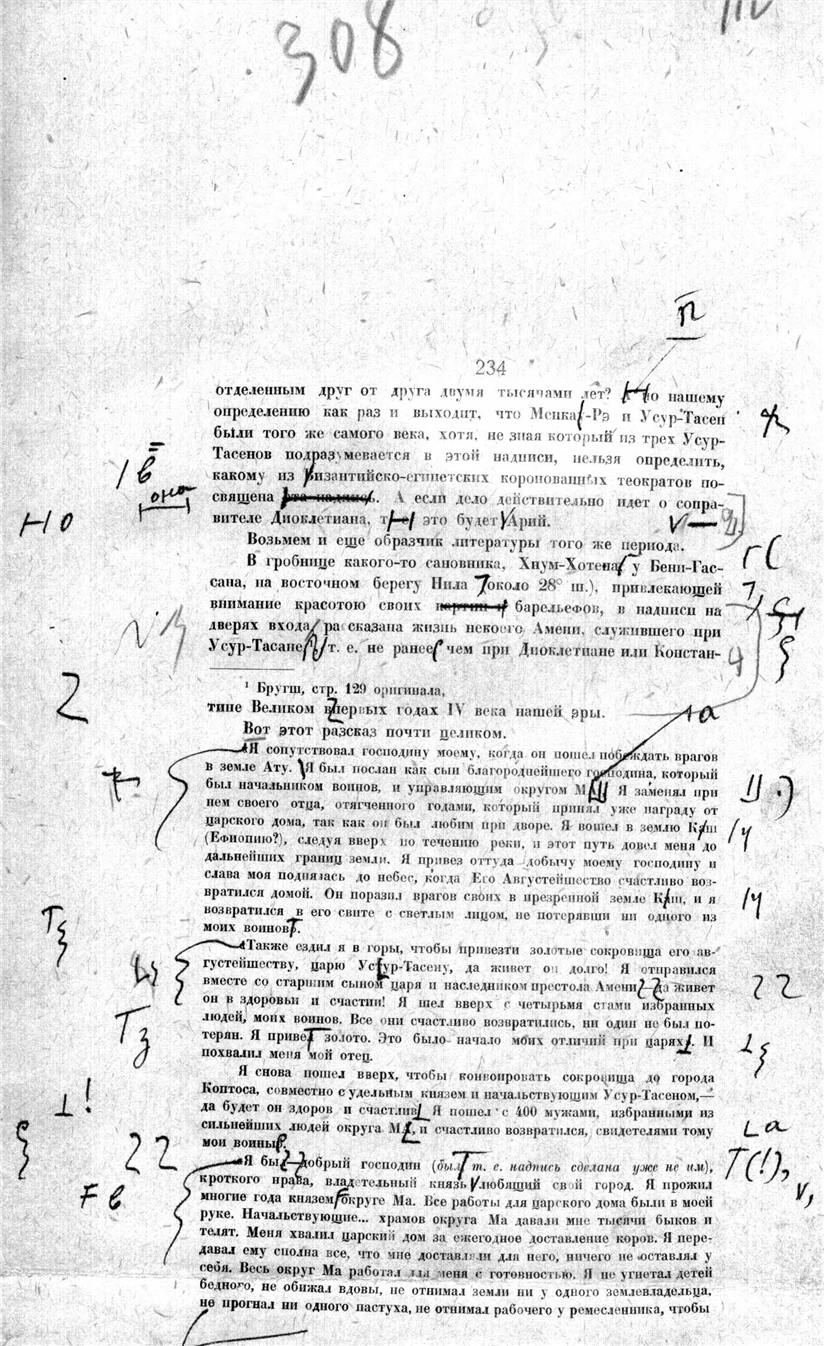 308
п
234
отделенным друг от друга двумя тысячами лет? Но нашему
определению как раз и выходит, что Менка-Рэ и Усур-Тасен
были того же самого века, хотя, не зная который из трех Усур-
Тасенов подразумевается в этой надписи, нельзя определить,
какому из византийско-египетских коронованных теократов по-
священа эта надпись. А если дело действительно идет о сопра-
вителе Диоклетиана, то это будет Арий.
1 в
она
но
Возьмем и еще образчик литературы того же периода.
В гробнице какого-то сановника, Хнум-Хотена, у Бени-Гас-
сана, на восточном берегу Нила около 28° ш.), привлекающей
внимание красотою своих картин и барельефов, в надписи на
дверях входа, рассказана жизнь некоего Амени, служившего при
Усур-Тасане, т. е. не ранее чем при Диоклетиане или Констан-
¹ Бругш, стр. 129 оригинала,
тине Великом в первых годах IV века нашей эры.
Вот этот разсказ почти целиком.
«Я сопутствовал господину моему, когда он пошел побеждать врагов
в земле Ату. Я был послан как сын благороднейшего господина, который
был начальником воинов, и управляющим округом М Я заменял при
нем своего отца, отягченного годами, который принял уже награду от
царского дома, так как он был любим при дворе. Я вошел в землю Каш
(Ефиопию?), следуя вверх по течению реки, и этот путь довел меня до
дальнейших границ земли. Я привез оттуда добычу моему господину и
слава моя поднялась до небес, когда Его Августейшество счастливо воз-
вратился домой. Он поразил врагов своих в презренной земле Каш, и я
возвратился в его свите с светлым лицом, не потерявши ни одного из
моих воинов.
«Также ездил я в горы, чтобы привезти золотые сокровища его ав-
густейшеству, царю Усур-Тасену, да живет он долго! Я отправился
вместе со старшим сыном царя и наследником престола Амени да живет
он в здоровьи и счастии! Я шел вверх с четырьмя стами избранных
людей, моих воинов. Все они счастливо возвратились, ни один не был по-
терян. Я привез золото. Это было начало моих отличий при царях. И
похвалил меня мой отец.
Я снова пошел вверх, чтобы конвоировать сокровища до города
Коптоса, совместно с удельным князем и начальствующим Усур-Тасеном,—
да будет он здоров и счастлив Я пошел с 400 мужами, избранными из
сильнейших людей округа М, и счастливо возвратился, свидетелями тому
мои воины.
«Я был добрый господин (был т. е. надпись сделана уже не им),
кроткого нрава, владетельный князь любящий свой город. Я прожил
многие года князем округе Ма. Все работы для царского дома были в моей
руке. Начальствующие... храмов округа Ма давали мне тысячи быков и
телят. Меня хвалил царский дом за ежегодное доставление коров. Я пере-
давал ему сполна все, что мне доставляли для него, ничего не оставлял у
себя. Весь округ Ма работал для меня с готовностью. Я не угнетал детей
бедного, не обижал вдовы, не отнимал земли ни у одного землевладельца,
не прогнал ни одного пастуха, не отнимал рабочего у ремесленника, чтобы